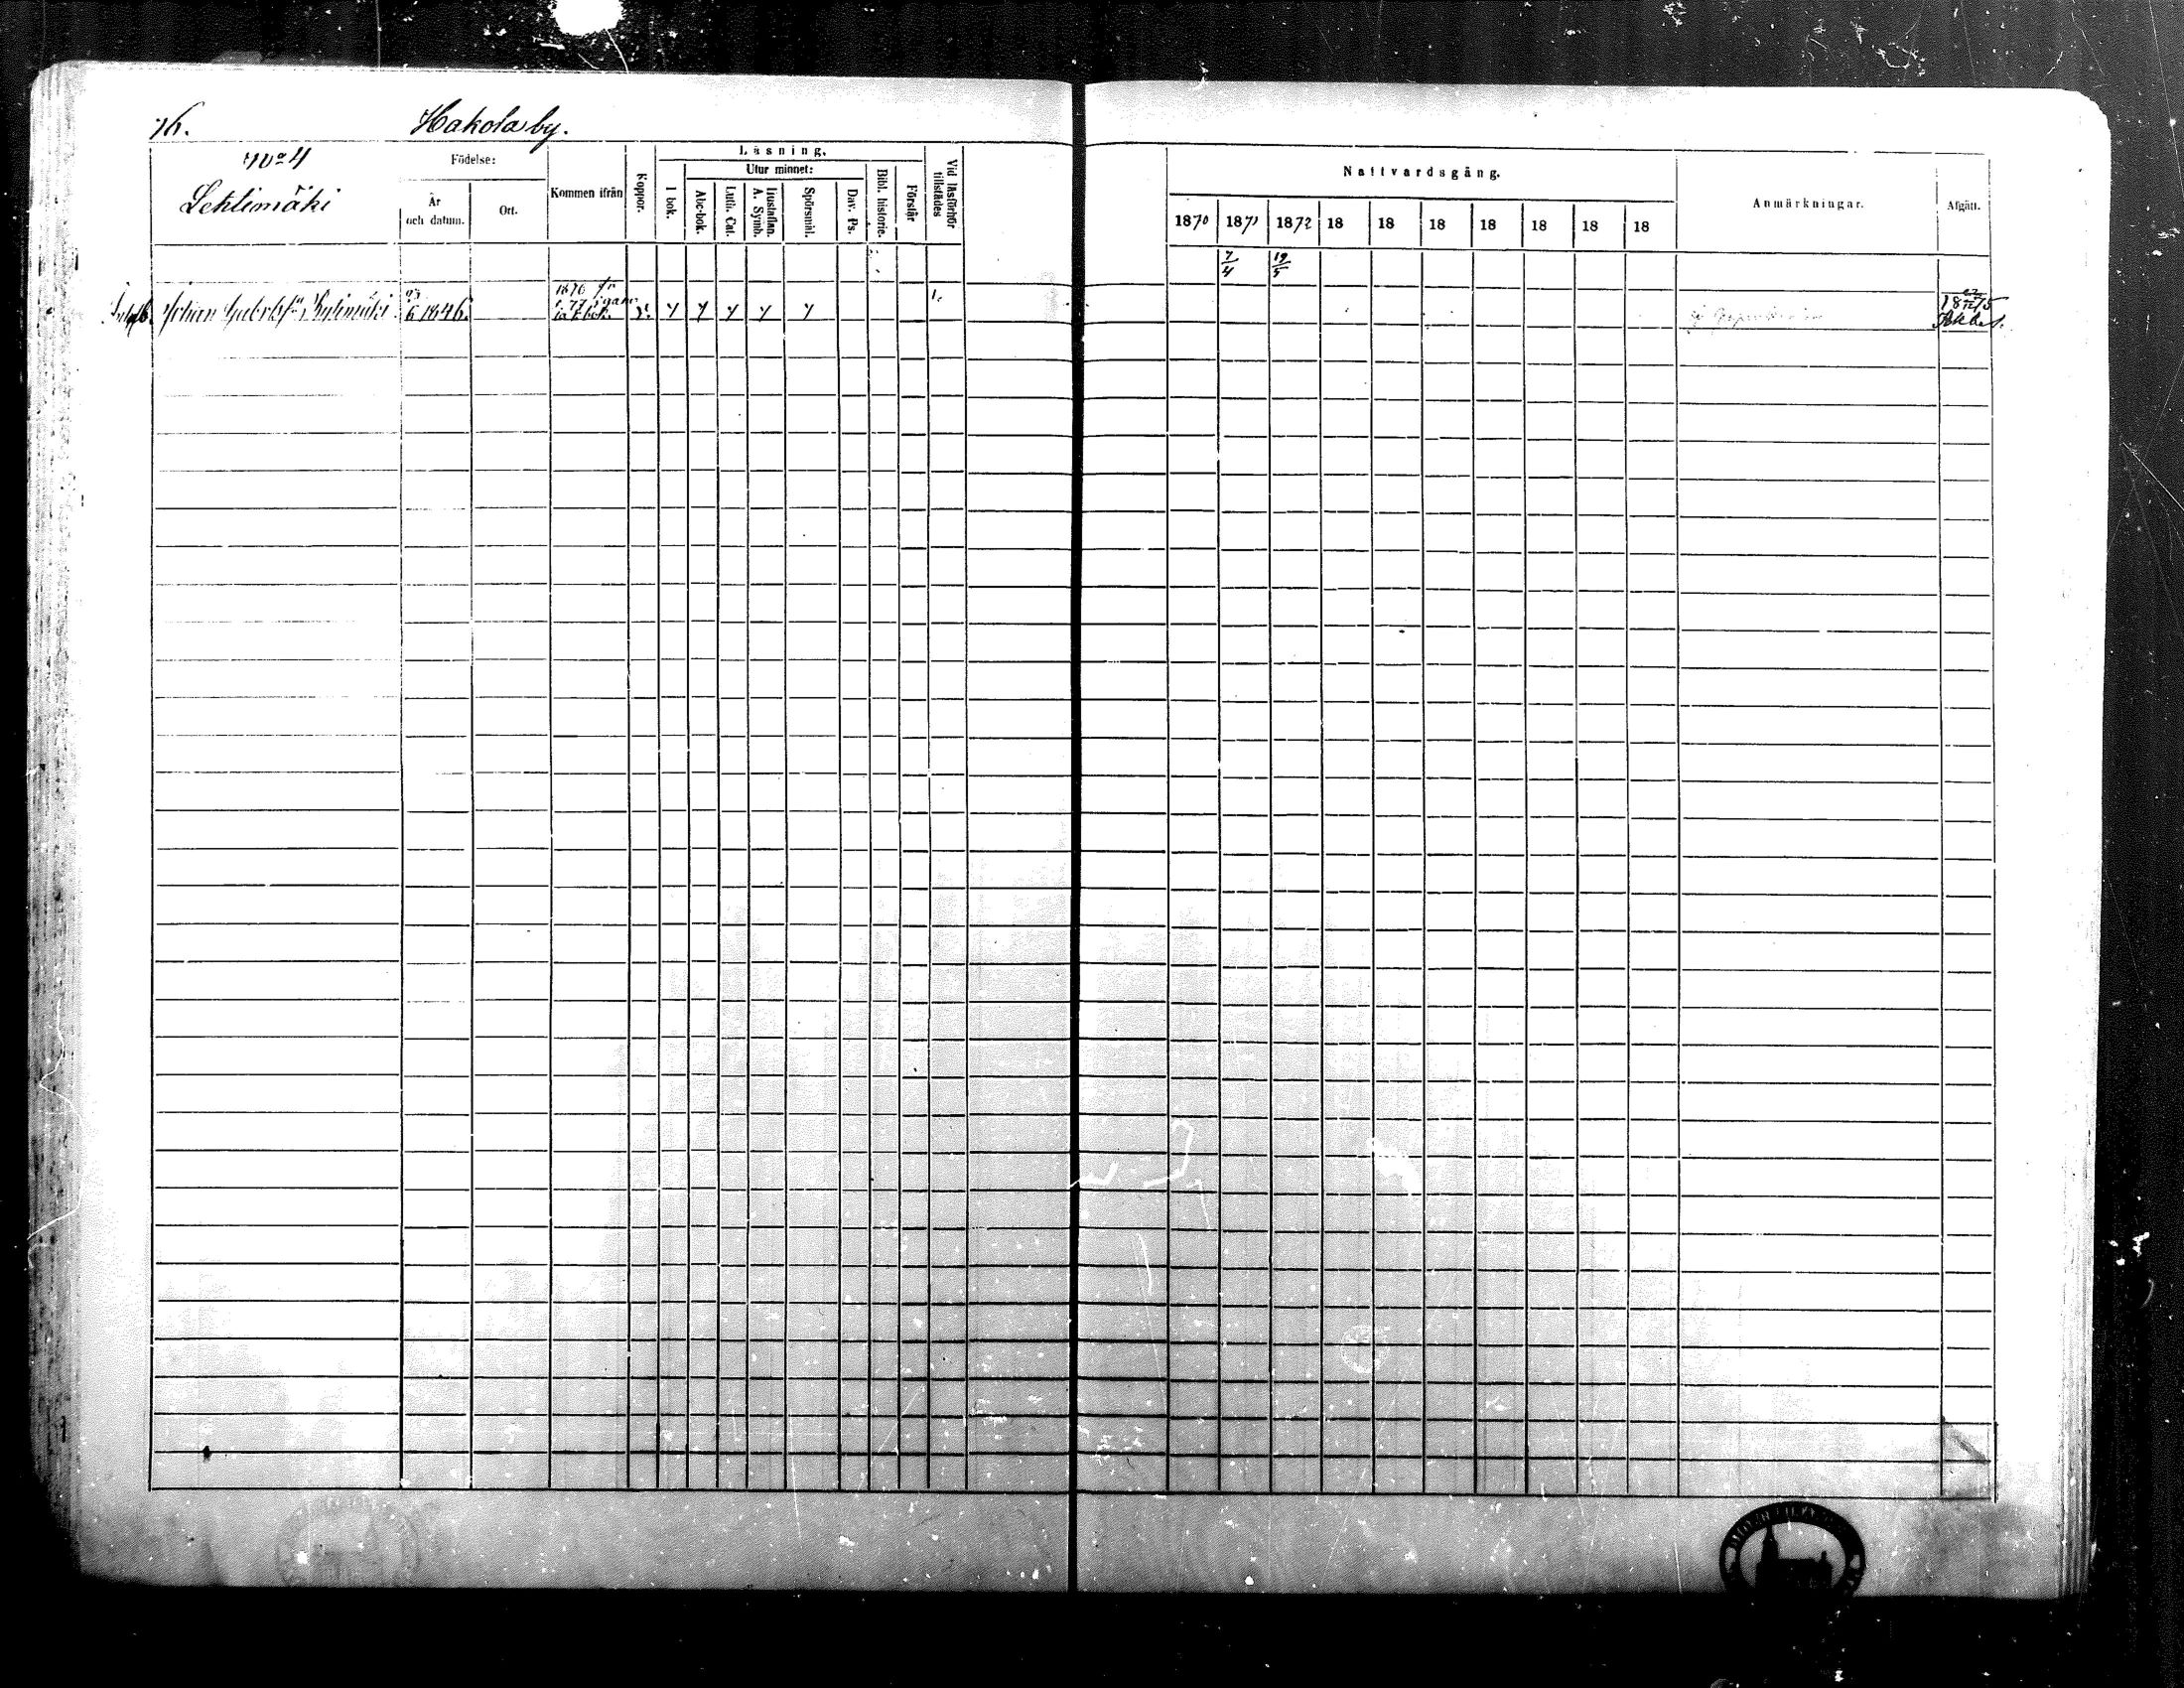 76.
Hakola by.
No 4
Lehtimäki
Födelse:
År
och datum.
Ort.
Kommen ifrån
Koppor.
Läsning.
Utur minnet:
I bok.
Abc-bok.
Luth. Cat.
Hustaflan.
A. Symb.
Spörsmål.
Dav. Ps.
Bibl. historie.
Förstår
Vid läsförhör
tillstädes
Nattvardsgång.
1870 1871 1872 18 18 18 18 18 18 18
Anmärkningar.
Afgått.
7/4 19/5
Johan
6 1846.
1870 fr
v. y y y y y
1.
1875